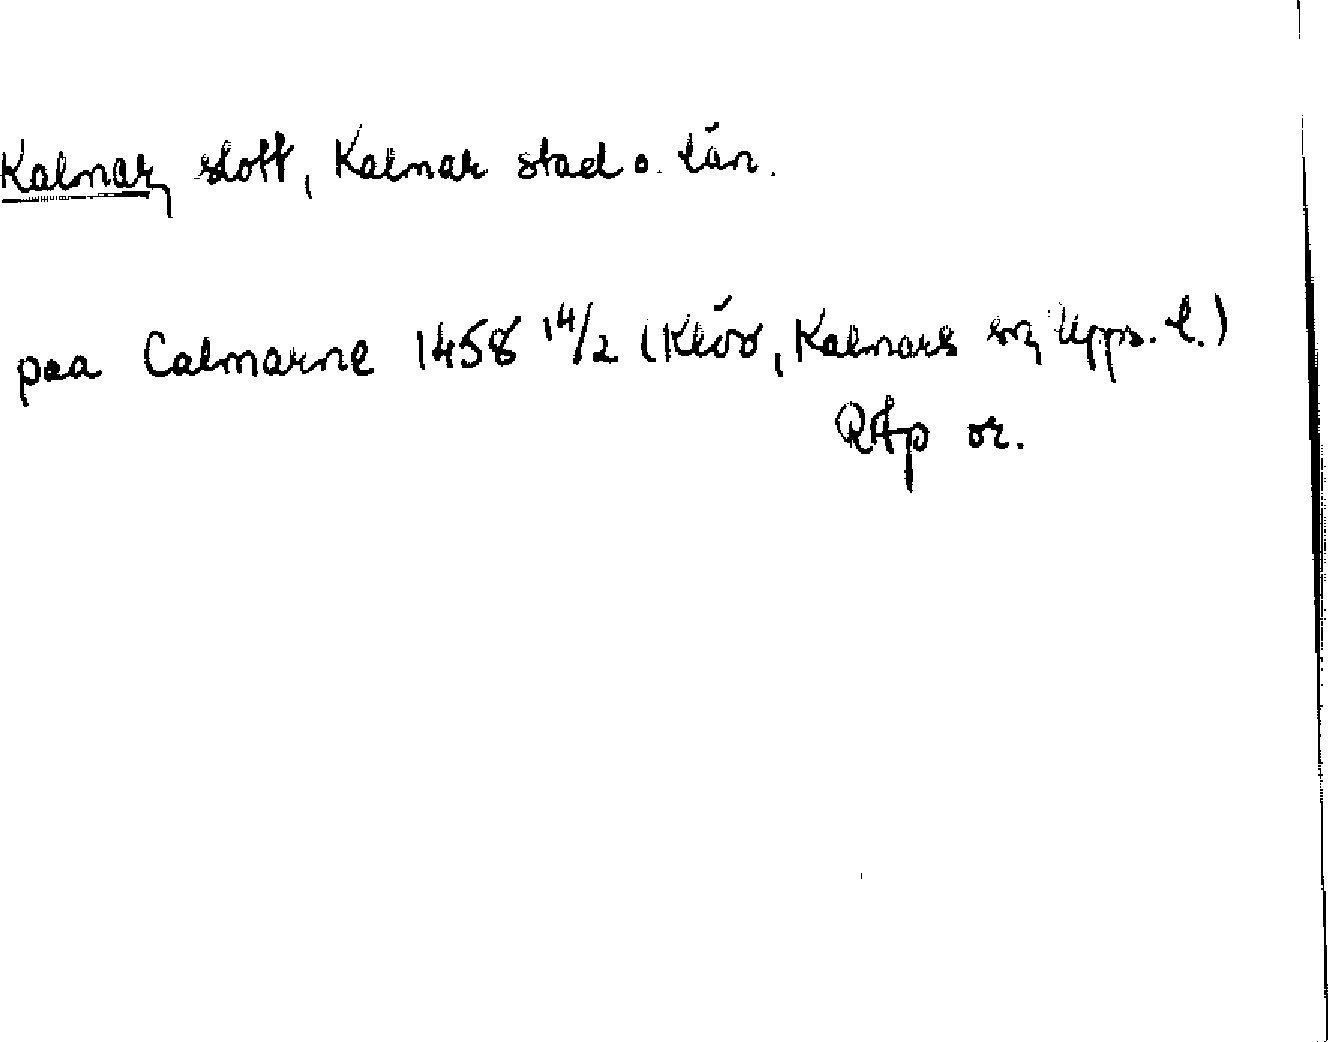 Kalmar, slott, Kalmar stad o. län.
paa Calmarne 1458 14/2 (Klöv, Kalmars sn, Upps. l.)
RAp or.